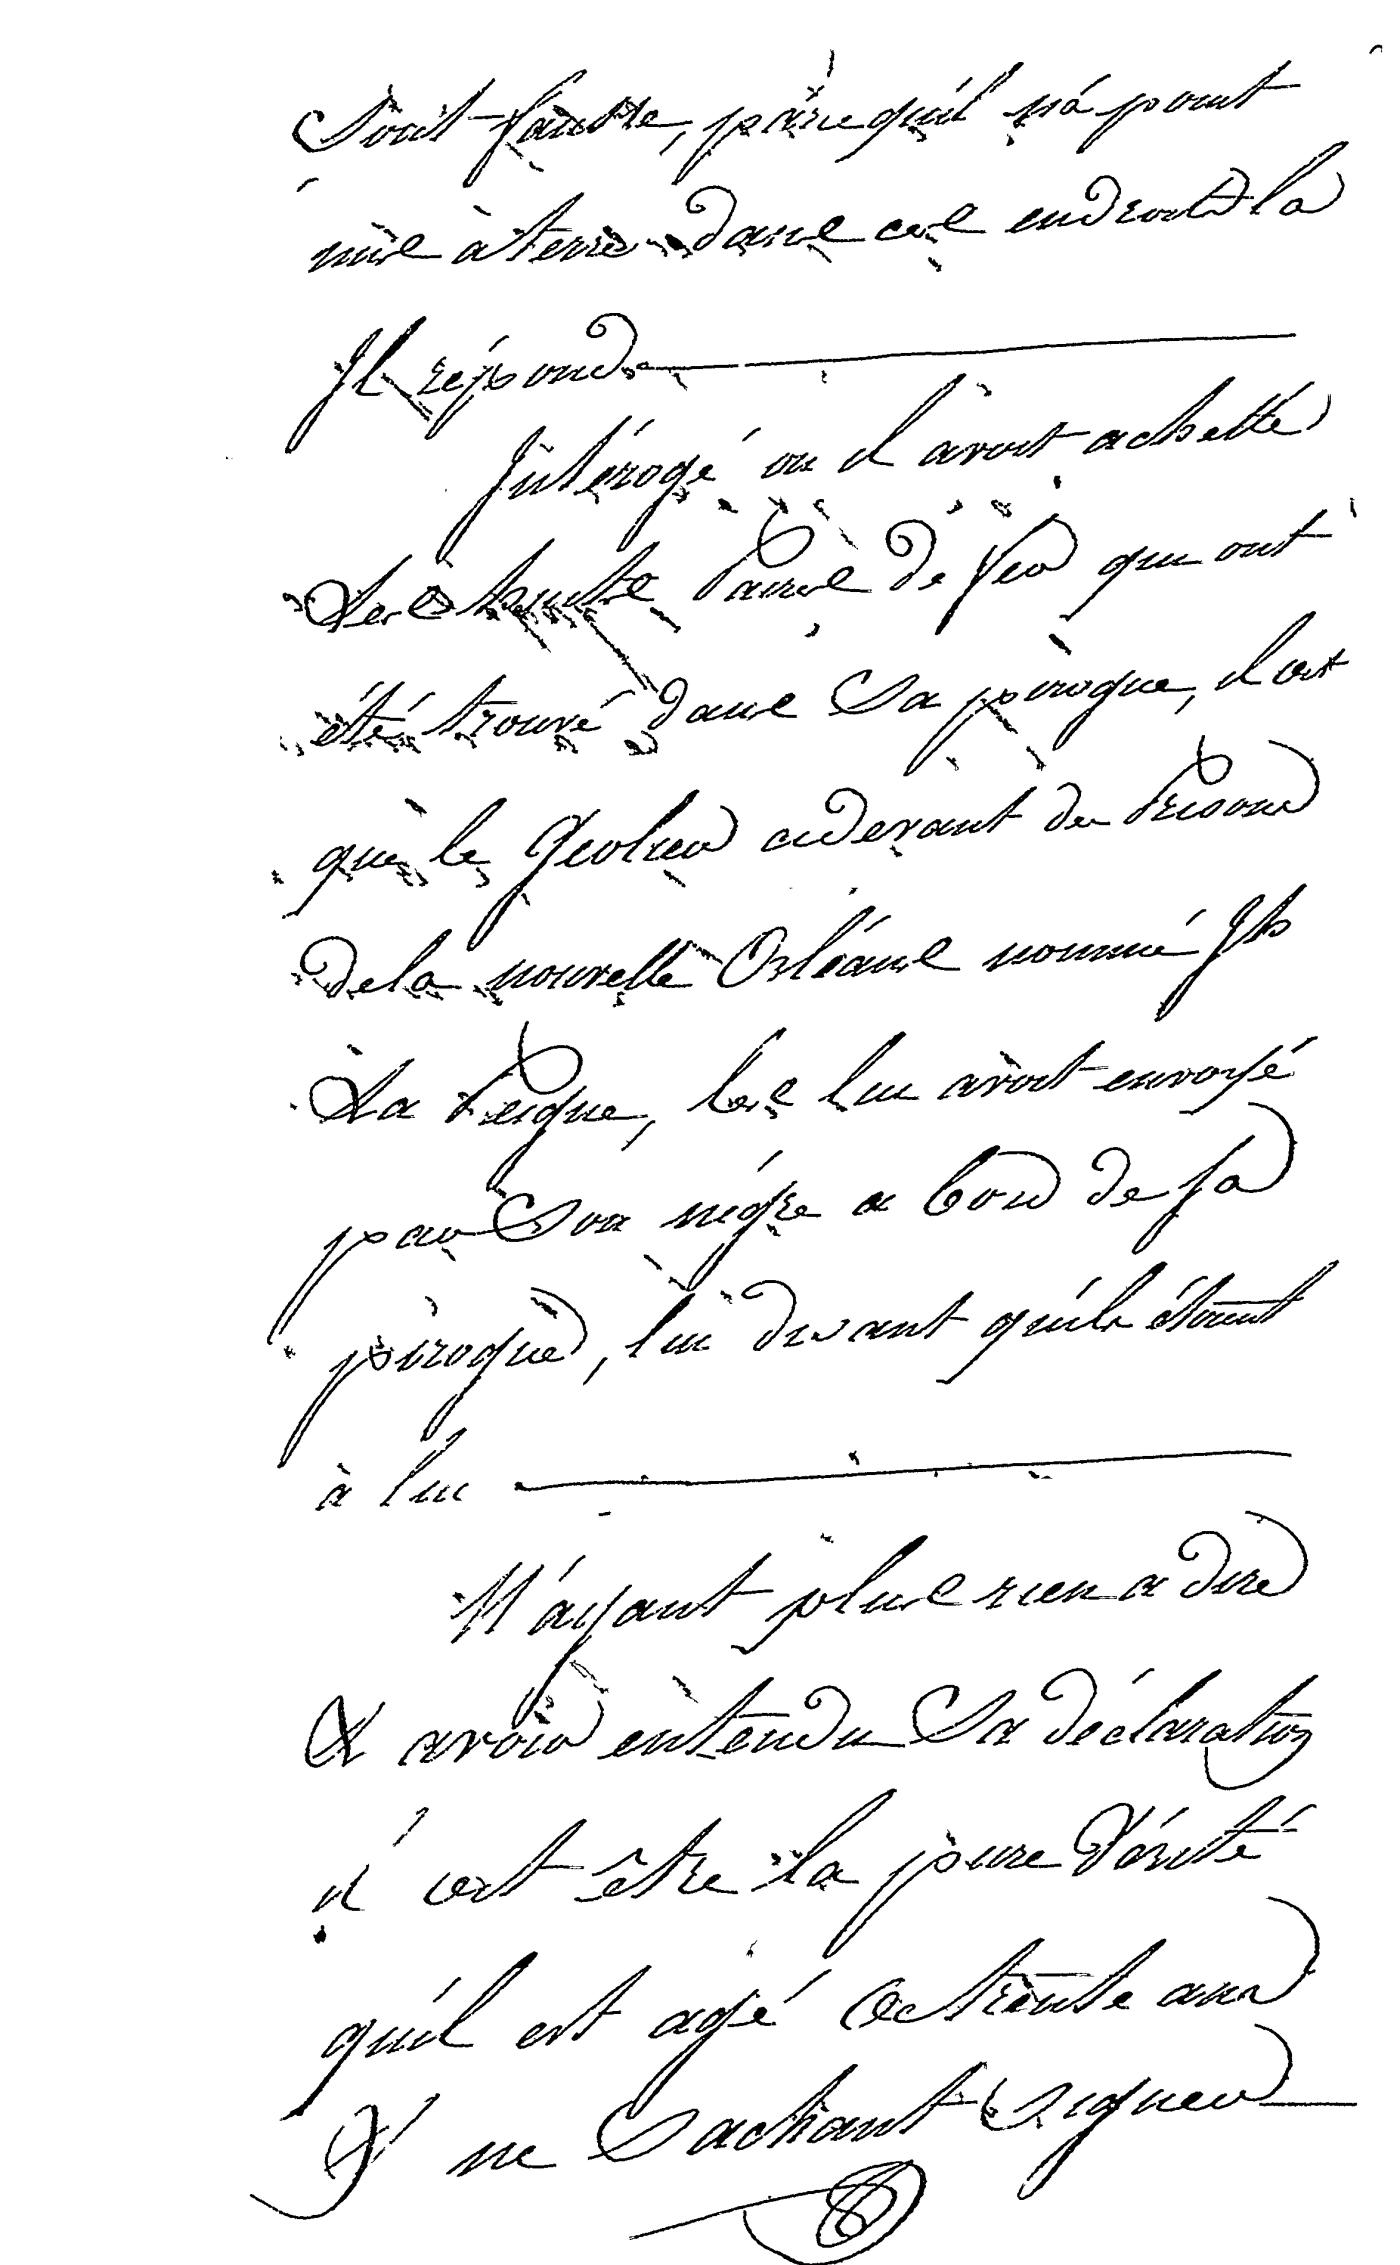 Soit fausse, parcequ'il n'a point
mis à terre dans cet endroit la
Il répond
Intérogé ou il avoit achetté
Les huit Paires de fer qui ont
été trouvé dans Sa pirogue, il dit
que le Geolier cidevant des Prisons
de la nouvelle Orléans nommé Jh
La Peigne, les lui avoit envoyé
par Son négre a bord de sa
pirogue, lui disant qu'ils étoient
à lui
N'ayant plus rien a dire
& avoir entendu Sa déclaration
il dit être la pure Vérité
qu'il est agé de trente ans
& ne Sachant Signer